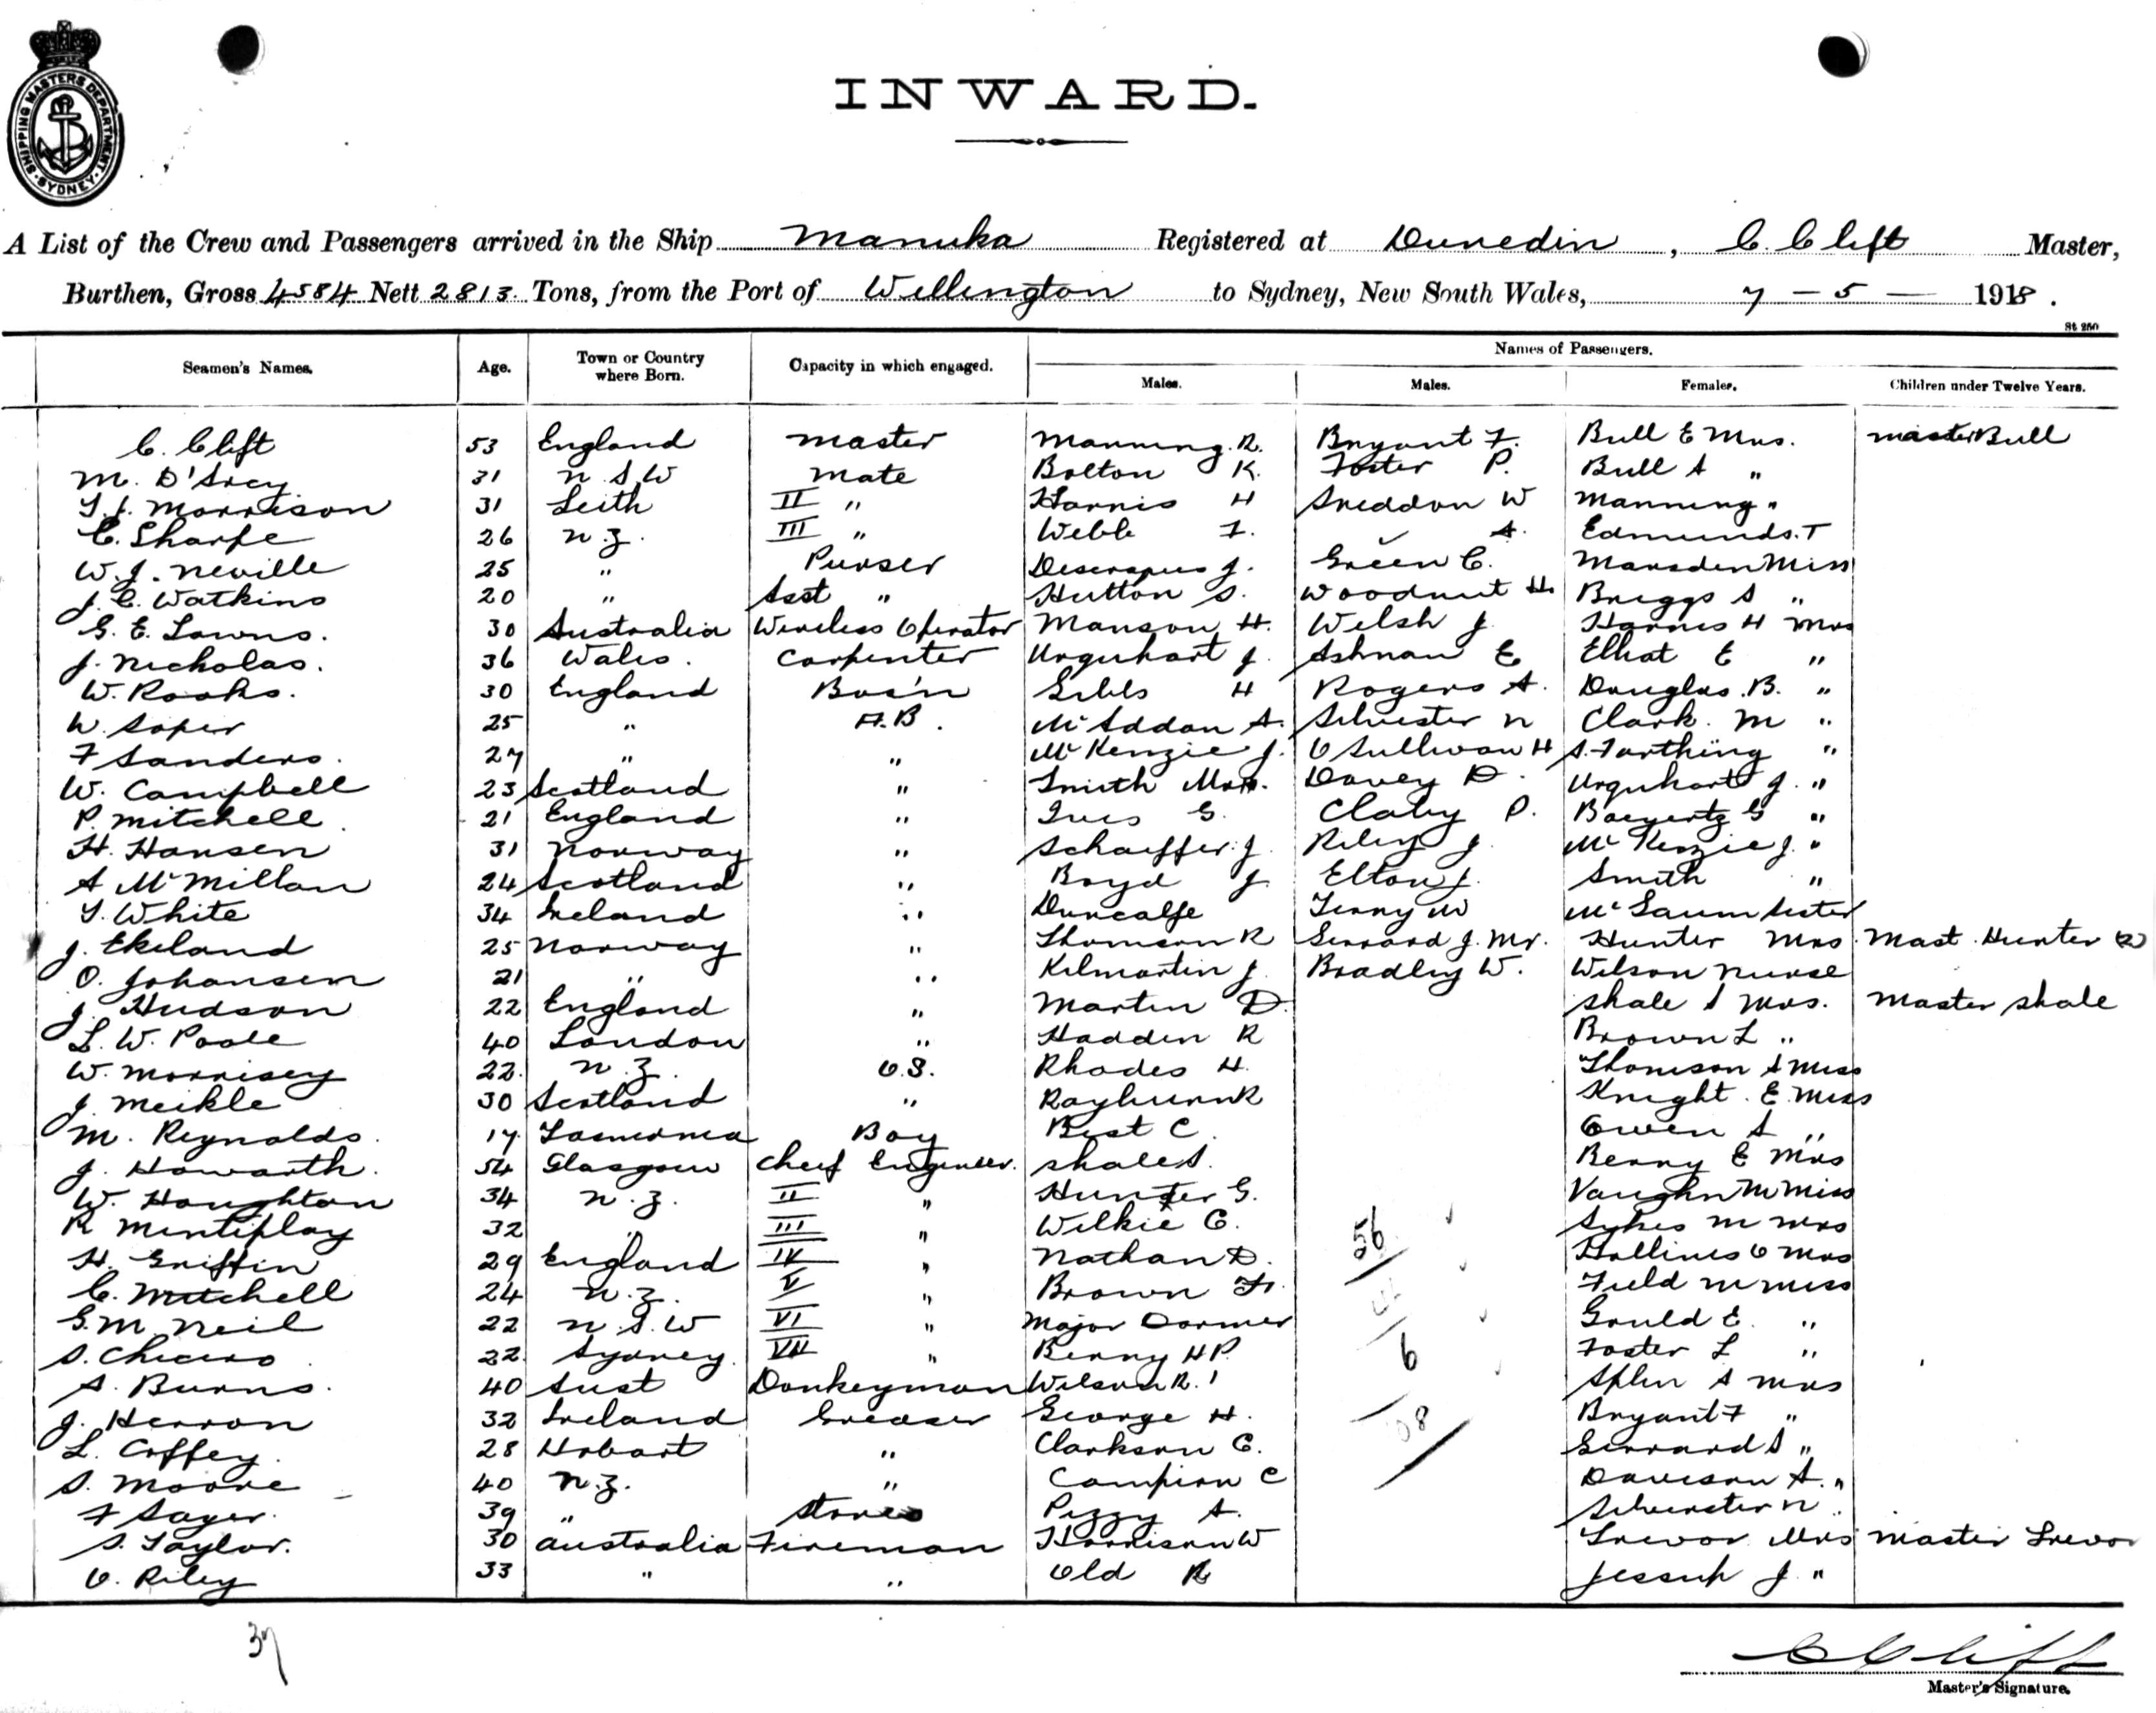 SHIPPING MASTERS DEPARTMENT
SYDNEY
INWARD.
A List of the Crew and Passengers arrived in the Ship Manuka Registered at Dunedin, C. Clift Master,
Burthen, Gross 4584 Nett 2813 Tons, from the Port of Wellington to Sydney, New South Wales, 7 - 5 - 1918.
St 250
Seamen's Names. Age. Town or Country where Born. Capacity in which engaged. Names of Passengers.
Males. Males. Females. Children under Twelve Years.
C. Clift 53 England Master Manning. R. Bryant F. Bull E Mrs. Master Bull
M. D'Arcy 31 N.S.W Mate Bolton K. Foster P. Bull A "
T. J. Morrison 31 Leith II " Harris H Sneddon W Manning "
C. Sharpe 26 N.Z. III " Webb F. " A. Edmunds. T
W. J. Neville 25 " Purser J. Green C. Marsden Miss
J. C. Watkins 20 " Asst " Hutton S. Woodnut H. Briggs A "
G. E. Lowns. 30 Australia Wireless Operator Manson H. Welsh J Harris H Mrs
J. Nicholas. 36 Wales. Carpenter Urquhart J. Ashman E Elliot E "
W. Rooks. 30 England Bos'n Gibbs H Rogers A. Douglas. B. "
W. Soper 25 " A.B. McAddon A. Silvester N Clark. M "
F Sanders. 27 " " McKenzie J. O Sullivan H A. Farthing "
W. Campbell 23 Scotland " Smith Davey D. Urquhart J. "
P. Mitchell. 21 England " Ives G. Claby P. Baeyertz G "
H. Hansen 31 Norway " Schaeffer. J. Riley J McKenzie J. "
A McMillan 24 Scotland " Boyd J. Elton J. Smith "
T. White 34 Ireland " Duncalfe Terry W Sister
J. Ekeland 25 Norway " Thomson R Gerrard J. Mr. Hunter Mrs. Mast. Hunter (2)
O. Johansen 21 " " Kilmartin J. Bradley W. Wilson Nurse
J. Hudson 22 England " Martin D. Shale S Mrs. Master Shale
L. W. Poole 40 London " Hadden R Brown L "
W. Morrisey 22. N.Z. O.S. Rhodes H. Thomson A Miss
J. Meikle 30 Scotland " Rayburn R Knight. E. Miss
M. Reynolds. 17. Tasmania Boy Best C. Owen A "
J. Howarth. 54 Glasgow Chief Engineer. Shale S. Berry E Mrs
W. Houghton 34 N.Z. II " Hunter G. Vaughn M Miss
R Mintiplay 32 " III " Wilkie C. Sykes M Mrs
H. Griffin 29 England IV " Nathan D. Hollines O Mrs
C. Mitchell 24 N.Z. V " Brown F. Field M Miss
G. M. Neil 22 N.S.W VI " Major Dormer Gould E. "
S. 22. Sydney. VII " Berry H P. Foster L "
A. Burns. 40 Aust Donkeyman Wilson R. A Mrs
J. Herron 32 Ireland Greaser George H. Bryant F "
L. Coffey. 28 Hobart " Clarkson C. Gerrard S "
S. Moore 40 N.Z. " Campion C Davison A. "
F Sayer. 39 " Stores Pizzy A. Silverster N.
S. Taylor. 30 Australia Fireman Harrison W Trevor Mrs Master Trevor
O. Riley 33 " " Old R Jessup J. "
56
6
37
C Clift
Master's Signature.